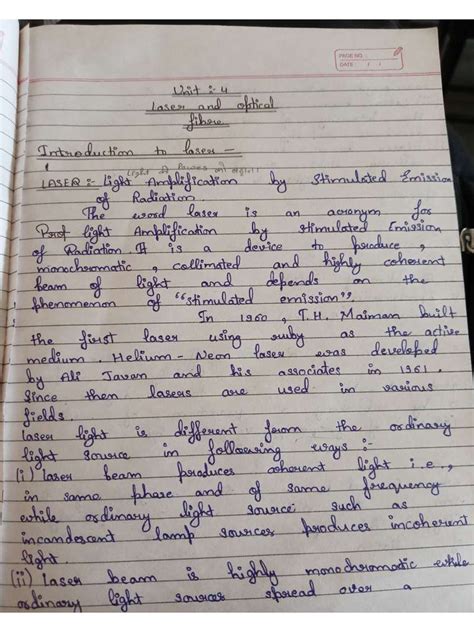 PAGE NO.:
DATE: / /
Unit :- 4
Laser and optical
fibre
Introduction to laser -
Light
LASER :- Light Amplification by Stimulated Emission
of Radiation.
The word laser is an acronym for
Prof light Amplification by stimulated Emission
of Radiation It is a device to produce,
monochromatic, collimated and highly coherent
beam of light and depends on the
phenomenon of "stimulated emission".
In 1960, T.H. Maiman built
the first laser using ruby as the active
medium. Helium - Neon laser was developed
by Ali Javan and his associates in 1961.
Since then lasers are used in various
fields.
Laser light is different from the ordinary
light source in following ways :-
(i) laser beam produces coherent light i.e.,
in same phase and of same frequency
while ordinary light source such as
incandescent lamp sources produces incoherent
light.
(ii) laser beam is highly monochromatic while
ordinary light sources spread over a